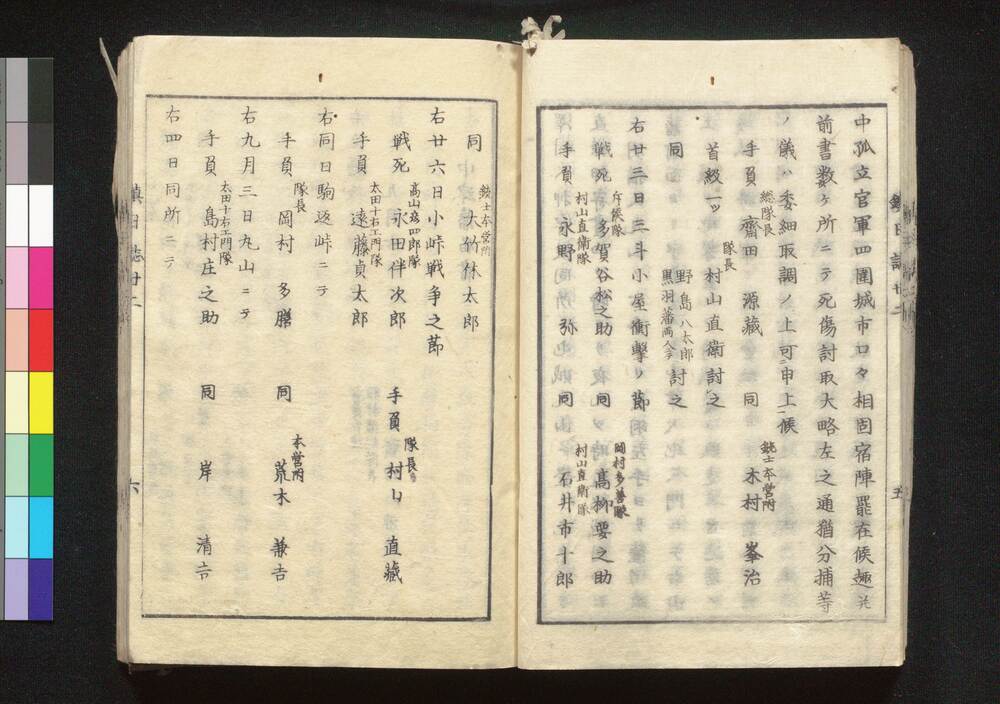 中孤立官軍四圍城市口々相固宿陣罷在候趣尤
前書数ヶ所ニテ死傷討取大略左之通猶分捕等
ノ儀ハ委細取調ノ上可申上候
総隊長
手負 齋田 源藏
銃士本営附
同 木村 峯治
隊長
首級一ッ 村山直衛討之
同
野島八太郎
黒羽藩両人ニテ
討之
右廿三日三斗小屋衝撃ノ節
斥候隊
戦死 多賀谷松之助
岡村多善隊
同 髙柳要之助
村山直衛隊
手負 永野 弥
村山直衛隊
同 石井市十郎
五
銃士本営附
同 大竹休太郎
右廿六日小峠戦争之節
高山 四郎隊
戦死 永田伴次郎
隊長
手負 村上 直藏
太田十右エ門隊
手負 遠藤貞太郎
右同日駒返峠ニテ
隊長
手負 岡村 多膳
本営附
同 荒木 兼吉
右九月三日丸山ニテ
太田十右エ門隊
手負 島村庄之助
同 岸 清吉
右四日同所ニテ
鎮日誌廿二
六